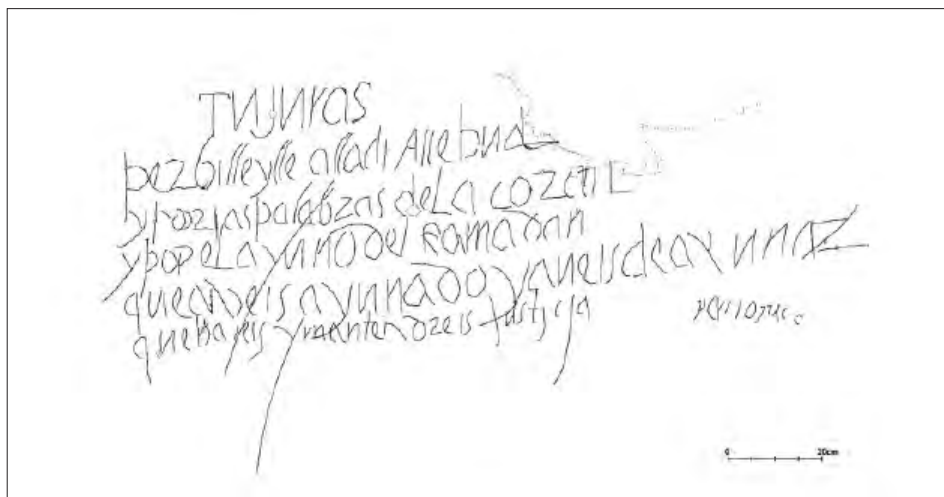 TUJURAS
bezbilleylle alladi Allebund
y poz las palabzas de La
y poz eL ayuno deL Ramadan
que aveis ayunnado y aueis de ayunnaz
que hareis y mantendzeis justicja
0 20cm